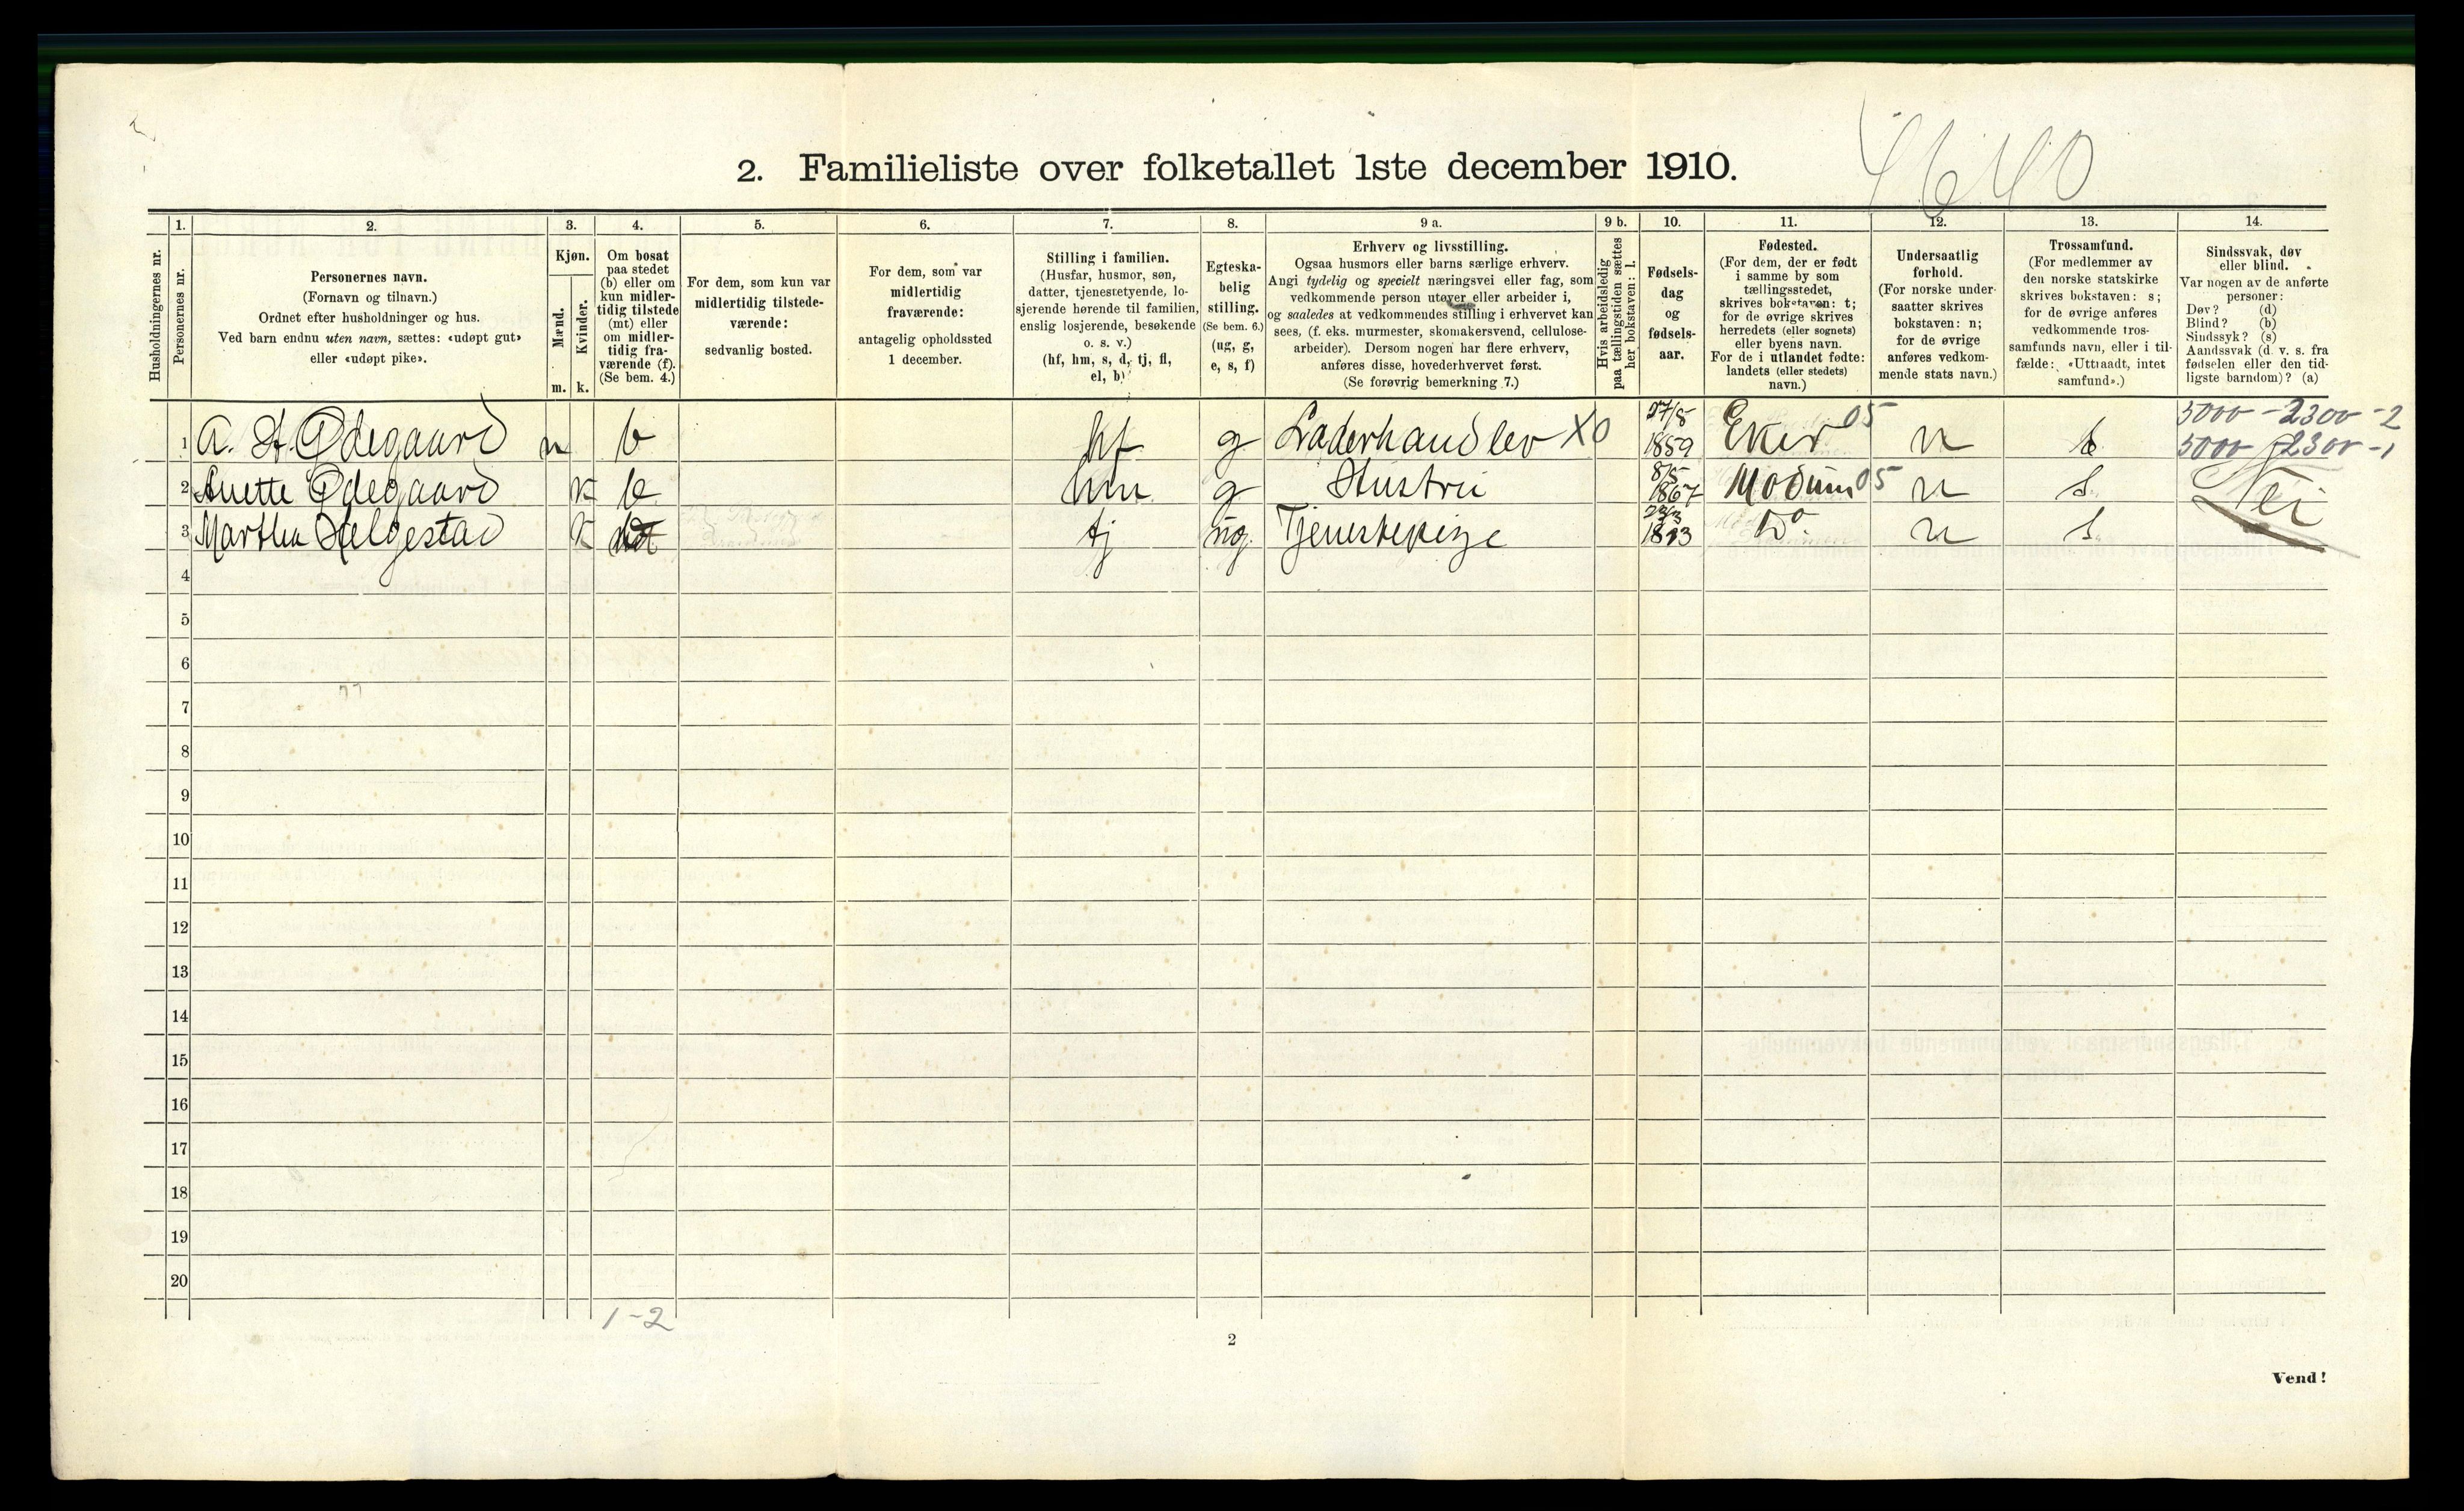 4640
2. Familieliste over folketallet 1ste december 1910.
Husholdningernes nr.
1. Personernes nr.
2. Personernes navn. (Fornavn og tilnavn.) Ordnet efter husholdninger og hus. Ved barn endnu uten navn, sættes: «udøpt gut» eller «udøpt pike».
3. Kjøn. Mænd. m. Kvinder. k.
4. Om bosat paa stedet (b) eller om kun midlertidig tilstede (mt) eller om midlertidig fraværende (f). (Se bem. 4.)
5. For dem, som kun var midlertidig tilstedeværende: sedvanlig bosted.
6. For dem, som var midlertidig fraværende: antagelig opholdssted 1 december.
7. Stilling i familien. (Husfar, husmor, søn, datter, tjenestetyende, losjerende hørende til familien, enslig losjerende, besøkende o. s. v.) (hf, hm, s, d, tj, fl, el, b)
8. Egteskabelig stilling. (Se bem. 6.) (ug, g, e, s, f)
9 a. Erhverv og livsstilling. Ogsaa husmors eller barns særlige erhverv. Angi tydelig og specielt næringsvei eller fag, som vedkommende person utøver eller arbeider i, og saaledes at vedkommendes stilling i erhvervet kan sees, (f. eks. murmester, skomakersvend, cellulosearbeider). Dersom nogen har flere erhverv, anføres disse, hovederhvervet først. (Se forøvrig bemerkning 7.)
9 b. Hvis arbeidsledig paa tællingstiden sættes her bokstaven: l.
10. Fødselsdag og fødselsaar.
11. Fødested. (For dem, der er født i samme by som tællingsstedet, skrives bokstaven: t; for de øvrige skrives herredets (eller sognets) eller byens navn. For de i utlandet fødte: landets (eller stedets) navn.)
12. Undersaatlig forhold. (For norske undersaatter skrives bokstaven: n; for de øvrige anføres vedkommende stats navn.)
13. Trossamfund. (For medlemmer av den norske statskirke skrives bokstaven: s; for de øvrige anføres vedkommende trossamfunds navn, eller i tilfælde: «Uttraadt, intet samfund».)
14. Sindssvak, døv eller blind. Var nogen av de anførte personer: Døv? (d) Blind? (b) Sindssyk? (s) Aandssvak (d. v. s. fra fødselen eller den tidligste barndom)? (a)
1 A. St. Ødegaard m b hf g Læderhandler X0 27/8 1859 Eker 05 n s 5000 - 2300 - 2
5000 - 2300 - 1
2 Anette Ødegaard k b hm g Hustru 8/5 1867 Modum 05 n s Nei
3 Martha Helgestad k tj ug. Tjenestepige Do. n s
4
5
6
7
8
9
10
11
12
13
14
15
16
17
18
19
20
1-2
2
Vend!